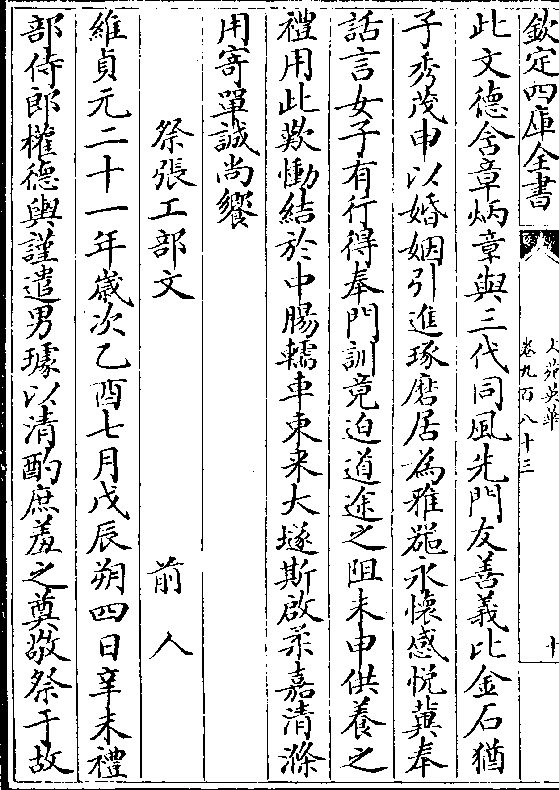 欽定四庫全書
文苑英華
卷九百八十三
十
此文德含章炳章與三代同風先門友善義比金石猶
子秀茂申以婚姻引進琢磨居為雅器永懷感悅冀奉
話言女子有行得奉門訓竟迫道途之阻未申供養之
禮用此歎慟結於中腸轜車東来大墜斯啟粢嘉清滌
用寄單誠尚饗
祭張工部文 前人
維貞元二十一年歲次乙酉七月戊辰朔四日辛未禮
部侍郎權德輿謹遣男璩以清酌庶羞之奠敬祭于故